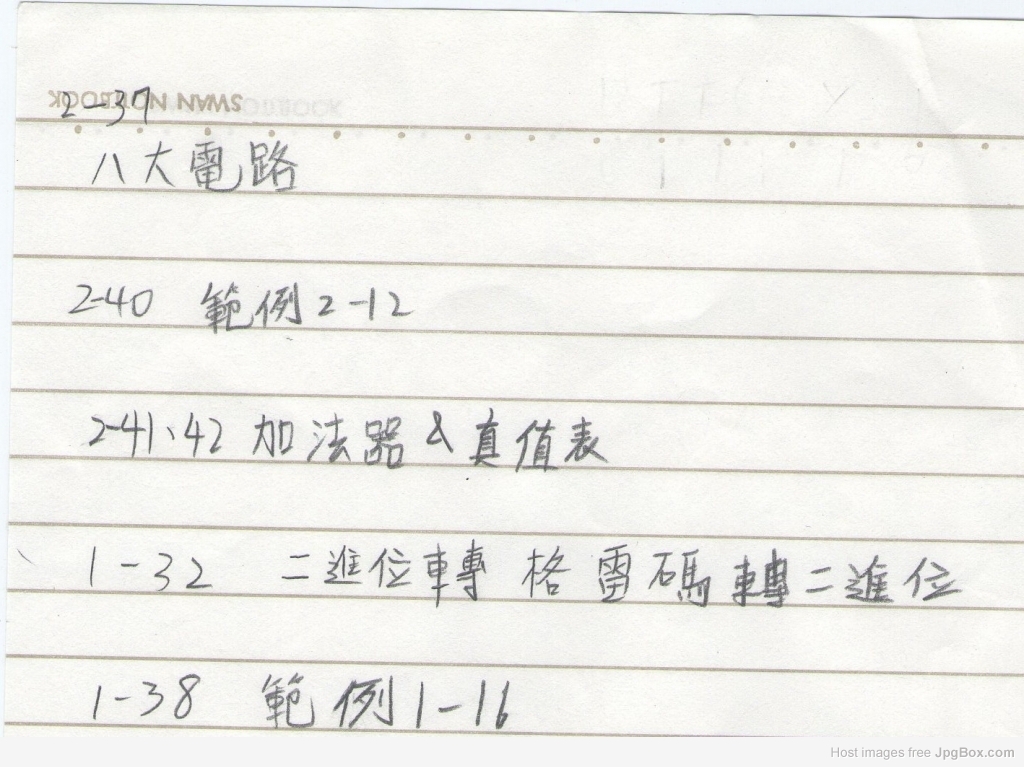 SWAN NOTEBOOK
2-37
八大電路
2-40 範例2-12
2-41、42 加法器&真值表
1-32 二進位轉格雷碼轉二進位
1-38 範例1-16
Host images free JpgBox.com